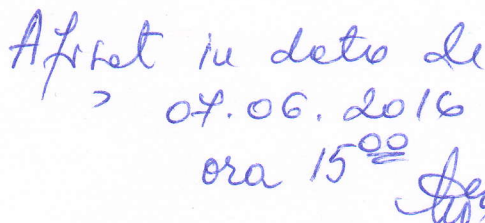 Afișat in data de
07.06.2016
ora 15⁰⁰